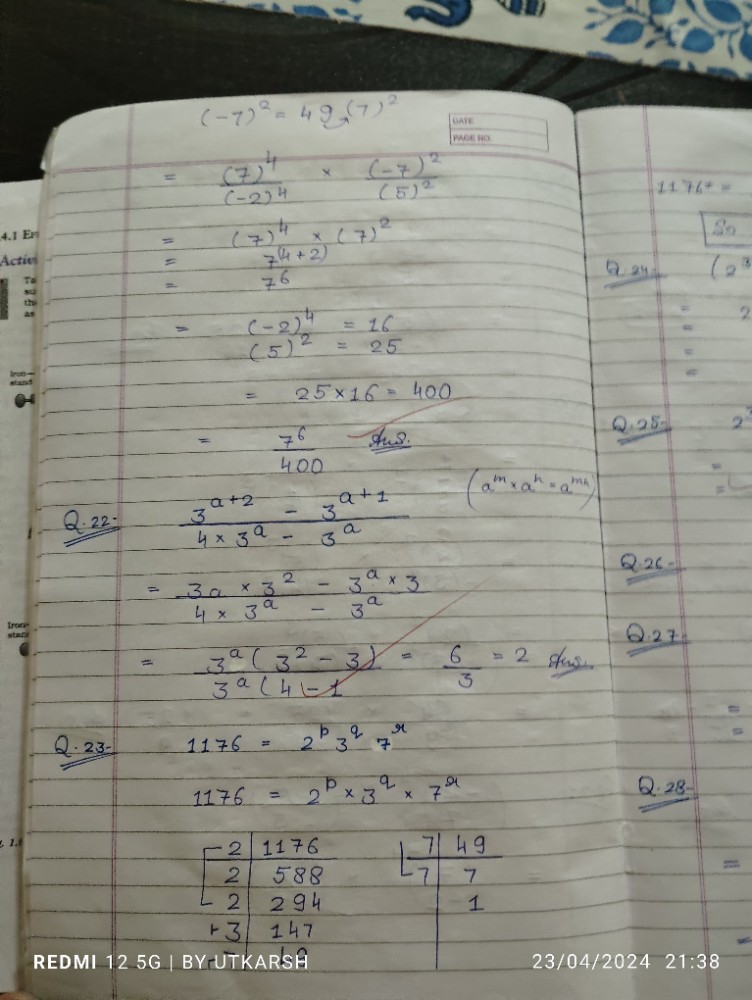 (-7)² = 49 (7)²
DATE
PAGE NO.
= (7)⁴/(-2)⁴ × (-7)²/(5)²
= (7)⁴ × (7)²
= 7⁽⁴⁺²⁾
= 7⁶
= (-2)⁴ = 16
(5)² = 25
= 25×16 = 400
= 7⁶/400 Ans.
(aᵐ × aⁿ = aᵐⁿ)
Q.22- (3^(a+2) - 3^(a+1))/(4 × 3^a - 3^a)
= (3a × 3² - 3^a × 3)/(4 × 3^a - 3^a)
= 3^a (3² - 3)/3^a (4 - 1 = 6/3 = 2 Ans.
Q.23- 1176 = 2^p 3^q 7^r
1176 = 2^p × 3^q × 7^r
2 | 1176
2 | 588
2 | 294
3 | 147
7 | 49
7 | 7
1
1176 =
So
Q.24- (2³
= 2
=
=
=
Q.25- 2
=
=
Q.26-
Q.27-
=
=
Q.28-
=
=
4.1
Iron-
stand
Iron-
REDMI 12 5G | BY UTKARSH
23/04/2024 21:38